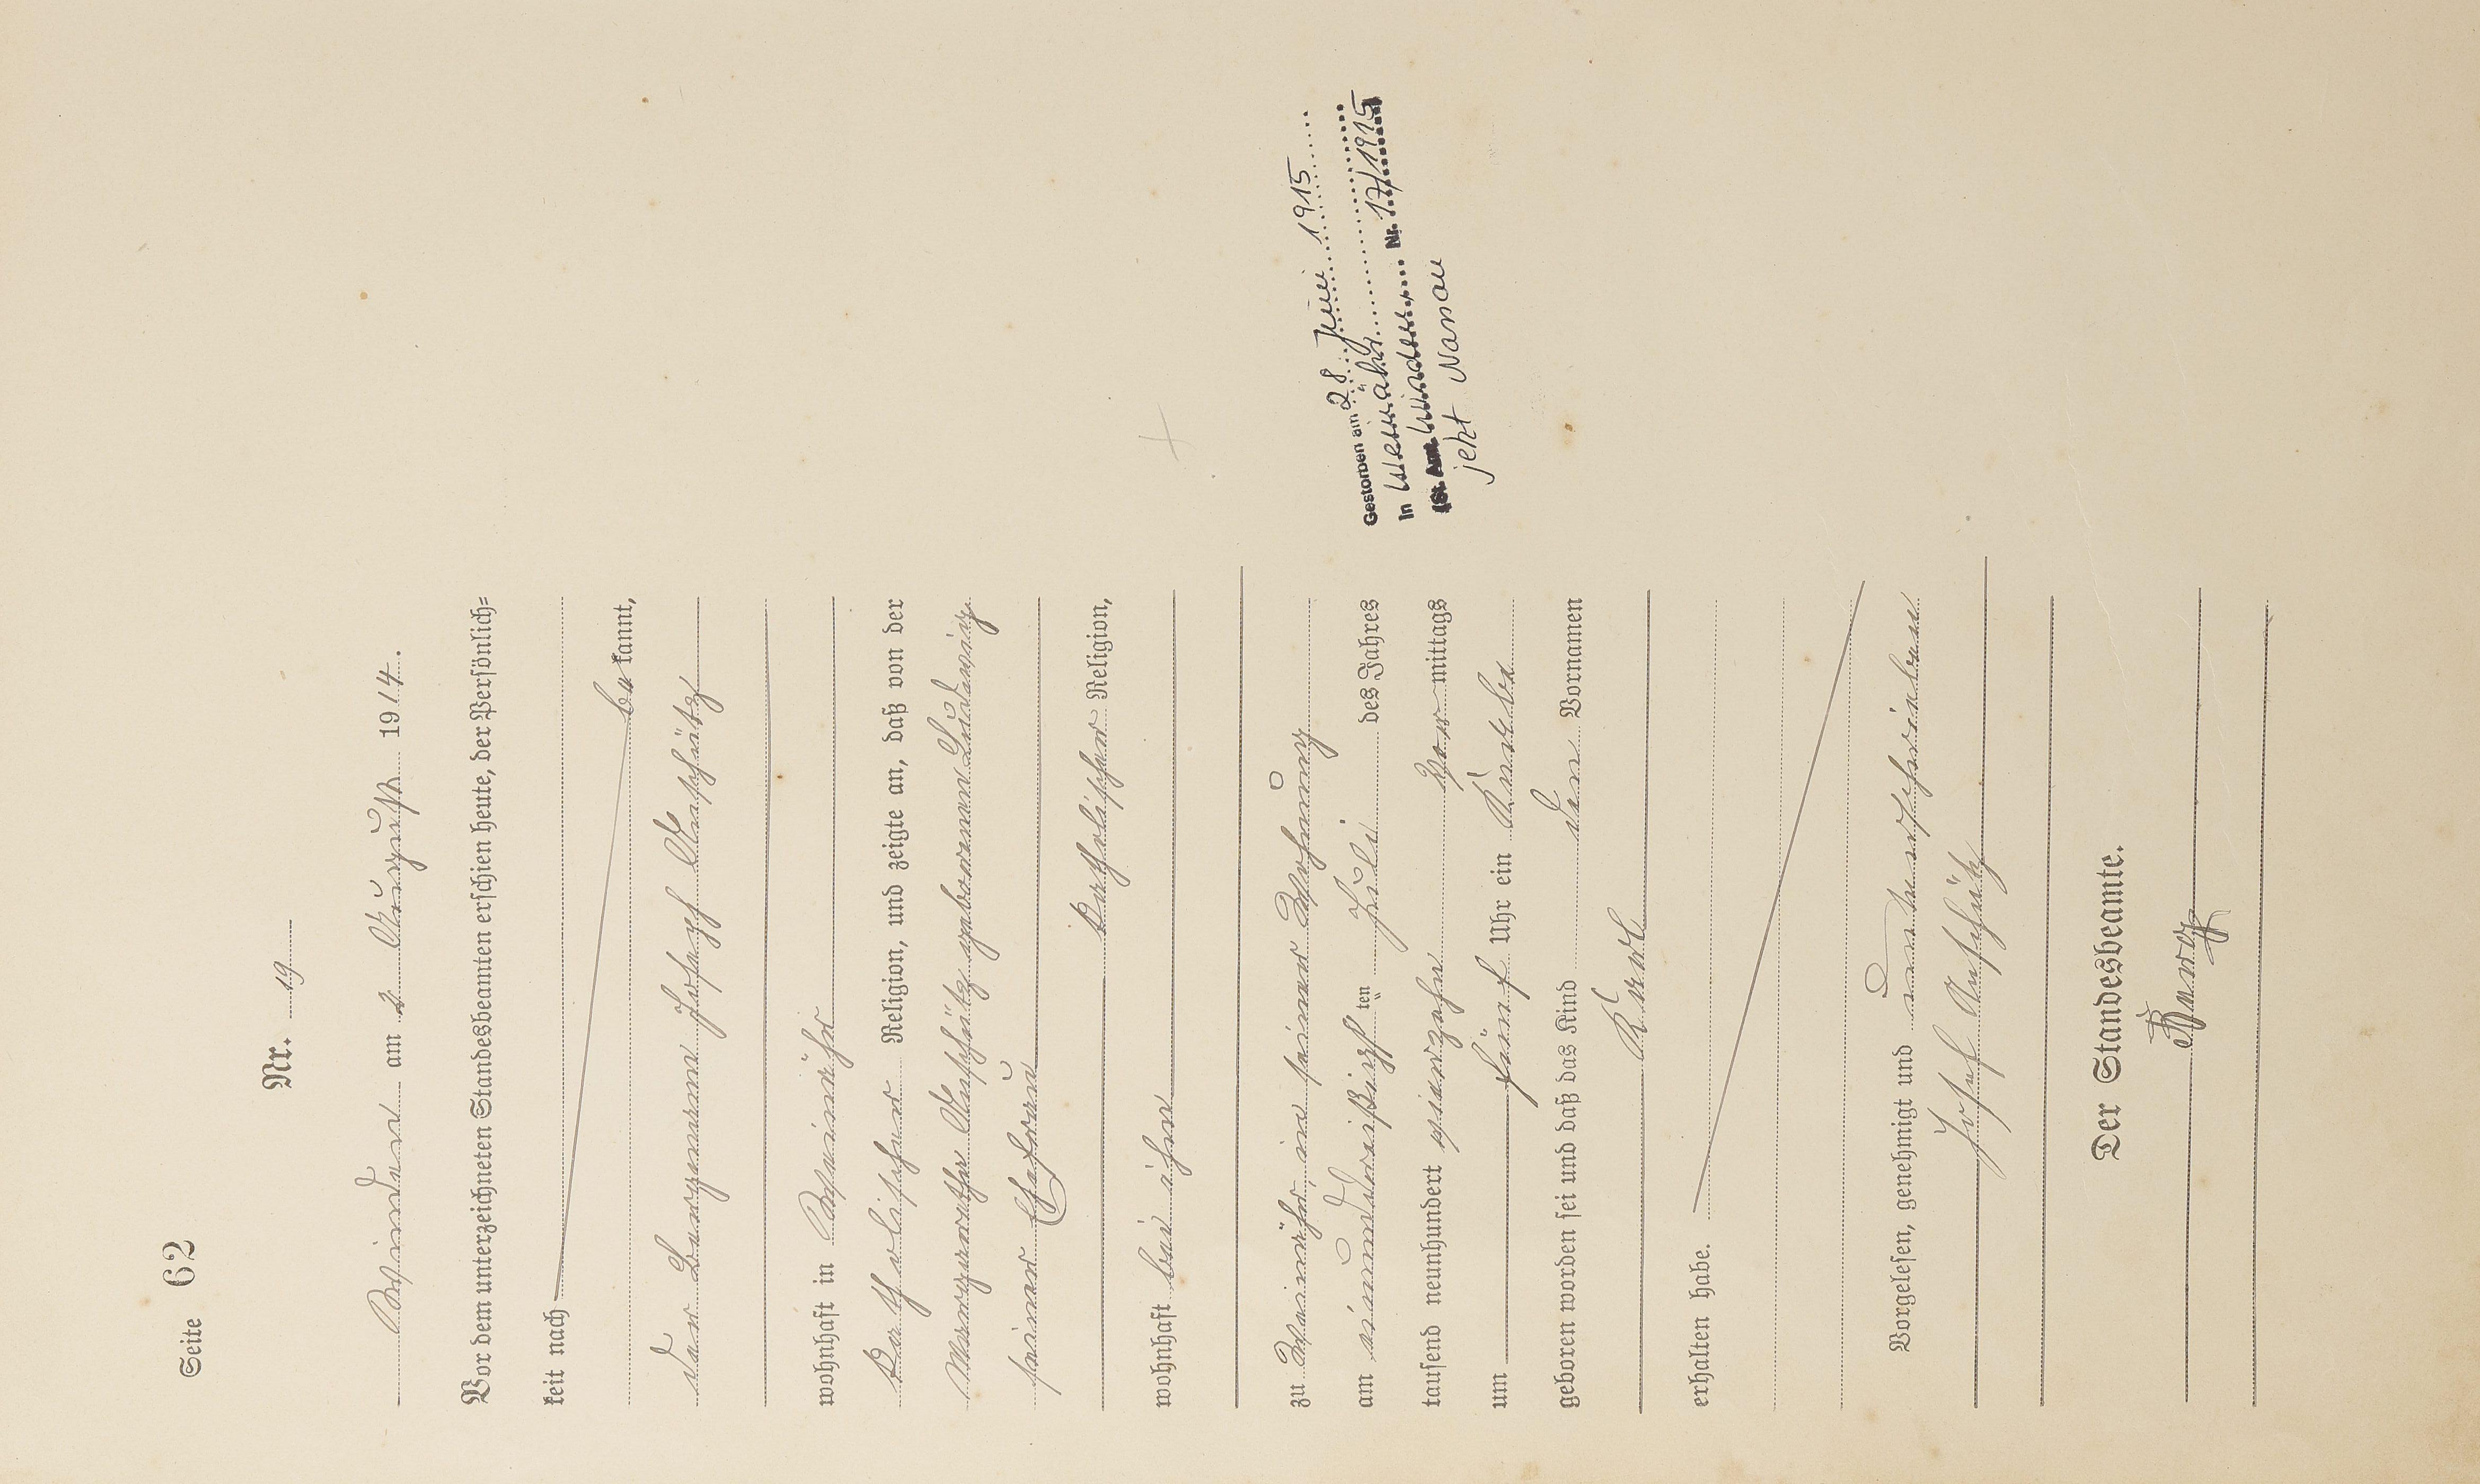 Seite 62
Nr. 19
Winden am 2 August 1914.
Vor dem unterzeichneten Standesbeamten erschien heute, der Persönlich-
keit nach
bekannt,
der Bergmann Josef Anschütz
wohnhaft in Weinähr
katholischer Religion, und zeigte an, daß von der
Margaretha Anschütz geborenen Ludwig
seiner Ehefrau
katholischer Religion,
wohnhaft bei ihm
zu Weinähr, in seiner Wohnung
am einunddreißigsten Juli des Jahres
tausend neunhundert vierzehn Vormittags
um fünf Uhr ein Knabe
geboren worden sei und daß das Kind den Vornamen
Karl
erhalten habe.
Vorgelesen, genehmigt und unterschrieben
Josef Anschütz
Der Standesbeamte.
Gestorben am 28. Juni 1915
In Weinähr
(St. Amt Winden Nr. 17/1915
jetzt Nassau